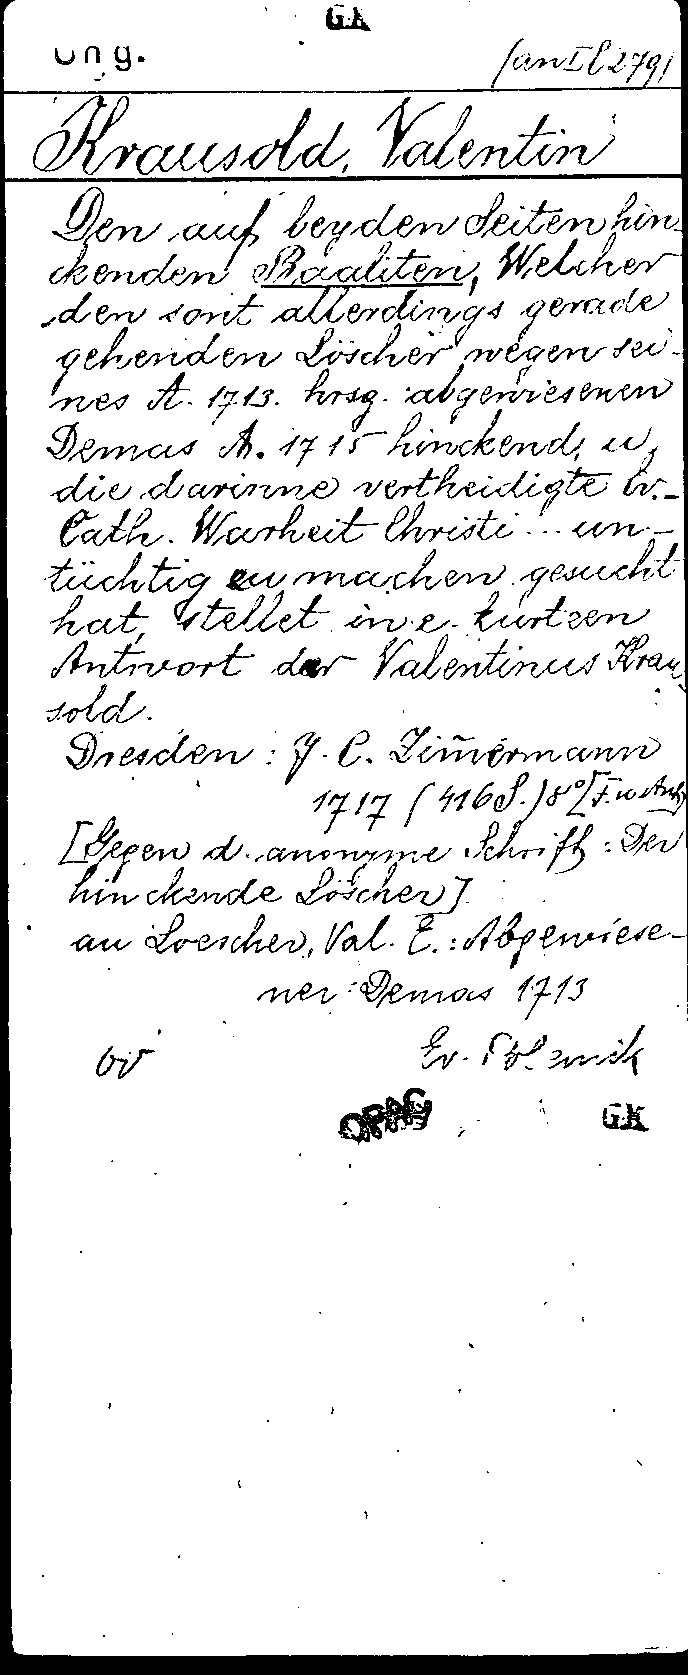 GK
Ung.
(an II 279)
Krausold, Valentin
Den auf beyden Seiten hin-
ckenden Baaliten, Welcher
den sont allerdings gerade
gehenden Löscher wegen sei-
nes A. 1713. hrsg. abgewiesenen
Demas A. 1715 hinckend, u.
die darinne vertheidigte Ev.-
Cath. Warheit Christi ... un-
tüchtig zu machen gesucht
hat, stellet in e. kurtzen
Antwort dar Valentinus Krau-
sold.
Dresden : J. C. Zim̄ermann
1717 (416 S.) 8° [F. u. Anh.]
[Gegen d. anonyme Schrift : Der
hinckende Löscher]
an Loescher, Val. E. : Abgewiese-
ner Demas 1713
Ev. Polemik
OPAC
GK